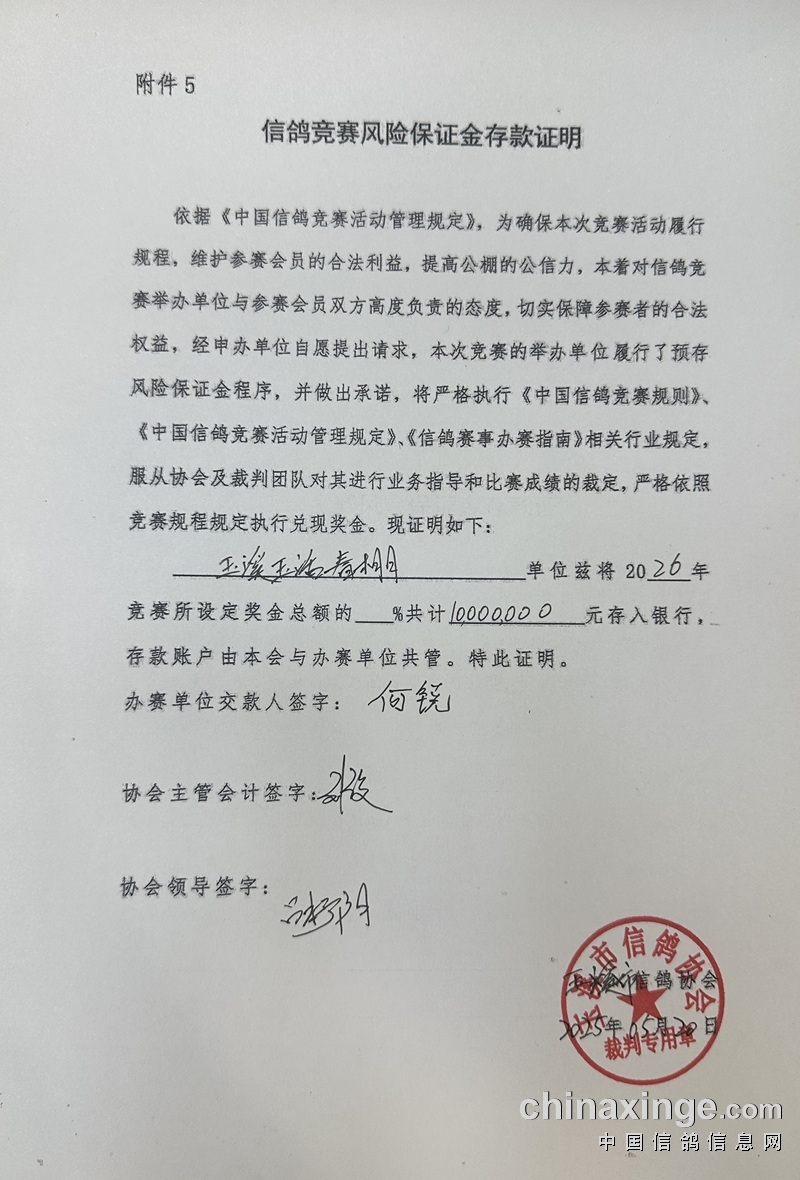 附件5
信鸽竞赛风险保证金存款证明
依据《中国信鸽竞赛活动管理规定》，为确保本次竞赛活动履行
规程，维护参赛会员的合法利益，提高公棚的公信力，本着对信鸽竞
赛举办单位与参赛会员双方高度负责的态度，切实保障参赛者的合法
权益，经申办单位自愿提出请求，本次竞赛的举办单位履行了预存
风险保证金程序，并做出承诺，将严格执行《中国信鸽竞赛规则》、
《中国信鸽竞赛活动管理规定》、《信鸽赛事办赛指南》相关行业规定，
服从协会及裁判团队对其进行业务指导和比赛成绩的裁定，严格依照
竞赛规程规定执行兑现奖金。现证明如下：
玉溪玉 春棚 单位兹将 2026年
竞赛所设定奖金总额的___%共计10,000,000元存入银行，
存款账户由本会与办赛单位共管。特此证明。
办赛单位交款人签字：何锐
协会主管会计签字：
协会领导签字：
玉溪市信鸽协会
2025年05月20日
市信鸽协会
裁判专用章
chinaxinge.com
中国信鸽信息网